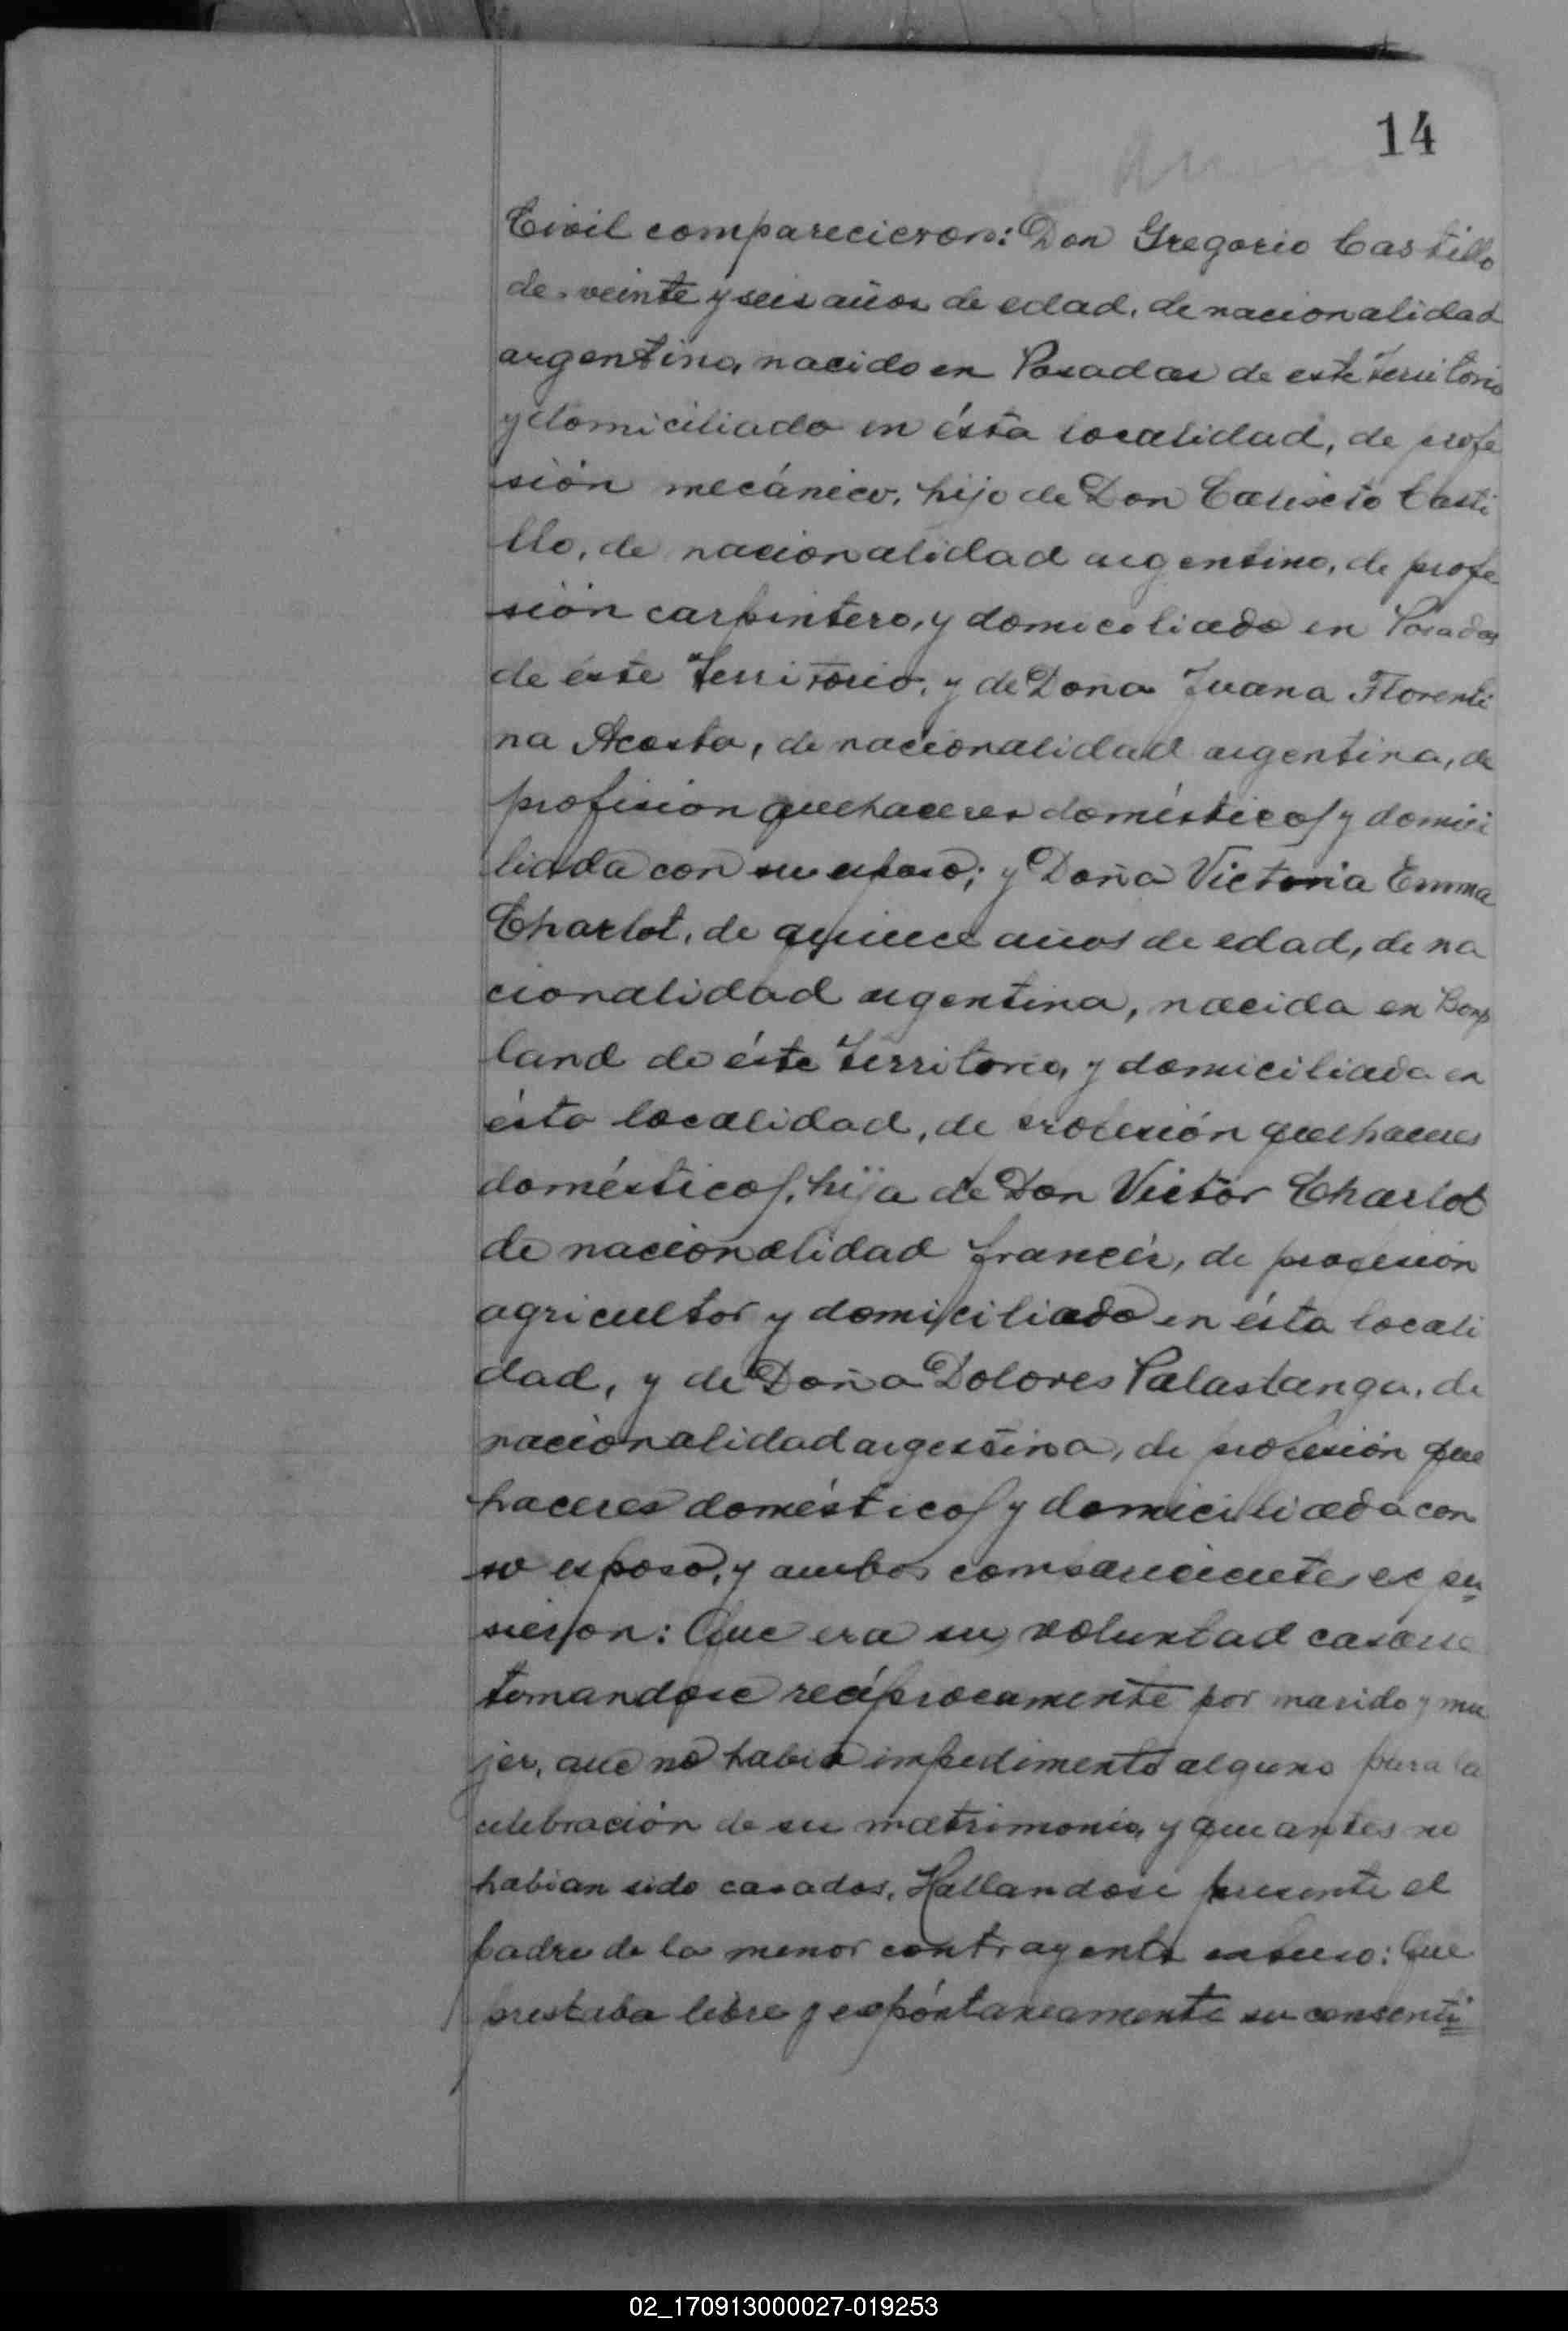 14
Civil comparecieron: Don Gregorio Castillo
de veinte y seis años de edad, de nacionalidad
argentino, nacido en Posadas de este Territorio
y domiciliado en ésta localidad, de profe
sión mecánico, hijo de Don Caliscto Casti
llo, de nacionalidad argentino, de profe
sión carpintero, y domiciliado en Posadas
de éste Territorio, y de Doña Juana Florenti
na Acosta, de nacionalidad argentina, de
profesion quehaceres domésticos y domici
liada con su esposo; y Doña Victoria Emma
Charlot, de quince años de edad, de na
cionalidad argentina, nacida en Bonp
land de éste Territorio, y domiciliada en
ésta localidad, de profesión quehaceres
domésticos, hija de Don Victor Charlot
de nacionalidad francés, de profesion
agricultor y domiciliado en ésta locali
dad, y de Doña Dolores Palastanga, de
nacionalidad argentina, de profesión que
haceres domésticos y domiciliada con
su esposo, y ambos comparecientes expu
sieron: Que era su voluntad casarse
tomandose recíprocamente por marido y mu
jer, que no habia impedimento alguno para la
celebración de su matrimonio, y que antes no
habian sido casados. Hallandose presente el
padre de la menor contrayente expuso: Que
prestaba libre y expóntaneamente su consenti
02_170913000027-019253